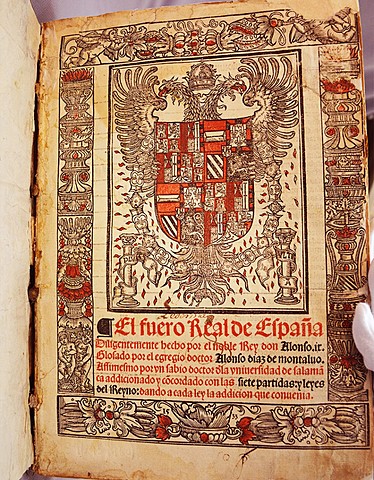 El fuero Real de España
Diligentemente hecho por el noble Rey don Alonso .ix.
Glosado por el egregio doctor Alonso diaz de montaluo.
Assimesmo por vn sabio doctor dla vniuersidad de salamã
ca addicionado y cõcordado con las siete partidas: y leyes
del Reyno: dando a cada ley la addicion que conuenia.